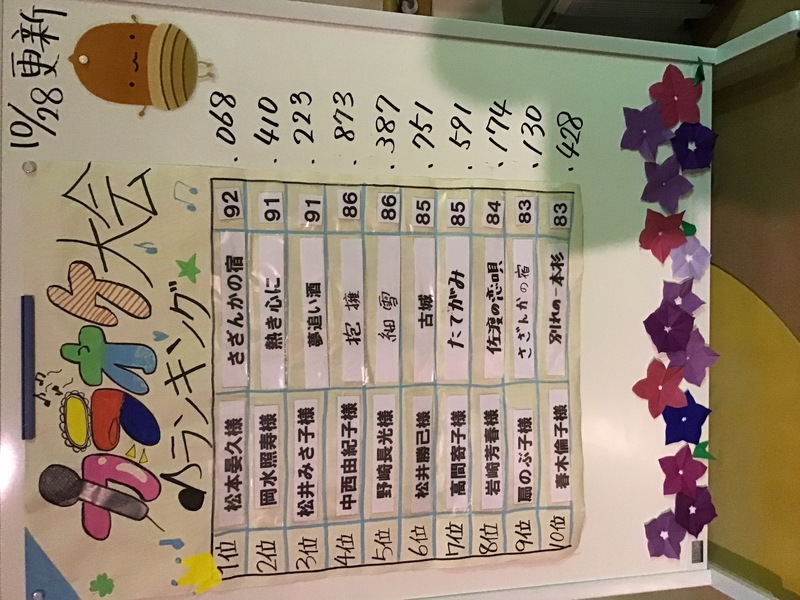 10/28更新
カラオケ大会
♪ランキング
1位 松本晏久様 さざんかの宿 92 .068
2位 岡水照寿様 熱き心に 91 .410
3位 松井みさ子様 夢追い酒 91 .223
4位 中西由紀子様 抱擁 86 .873
5位 野崎長光様 細雪 86 .387
6位 松井勝己様 古城 85 .751
7位 高間啓子様 たてがみ 85 .591
8位 岩崎芳春様 佐渡の恋唄 84 .174
9位 扇のぶ子様 さざんかの宿 83 .130
10位 春木倫子様 別れの一本杉 83 .428